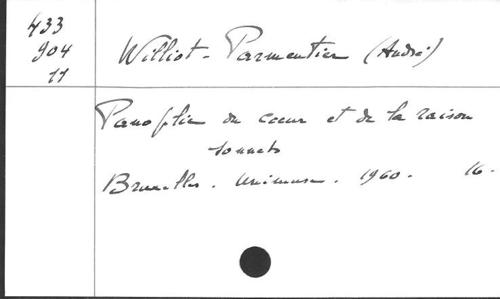 433
904
11
Williot-Parmentier (André)
Panoplie du coeur et de la raison
sonnets
Bruxelles. Unimuse. 1960. 16.